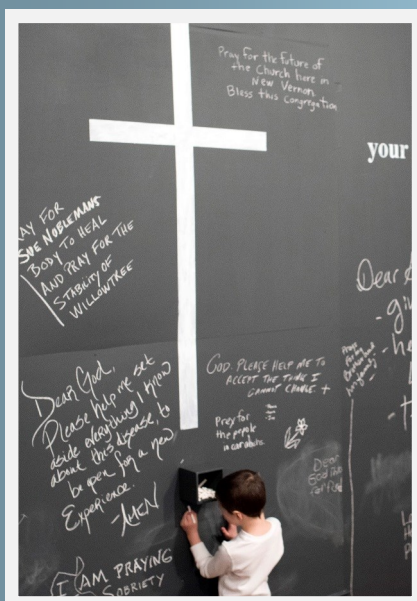 Pray for the future of
the Church here in
New Vernon
Bless this Congregation
your
AY FOR
SUE NOBLEMANS
BODY TO HEAL
AND PRAY FOR THE
STABILITY OF
WILLOWTREE
Dear
Dear God,
Please help me set
aside everything I know
about this disease, to
be open for a new
Experience.
AMEN
GOD, PLEASE HELP ME TO
ACCEPT THE THINGS I
CANNOT CHANGE +
Pray for
the people
in
Dear
God
for
I AM PRAYING
SOBRIETY